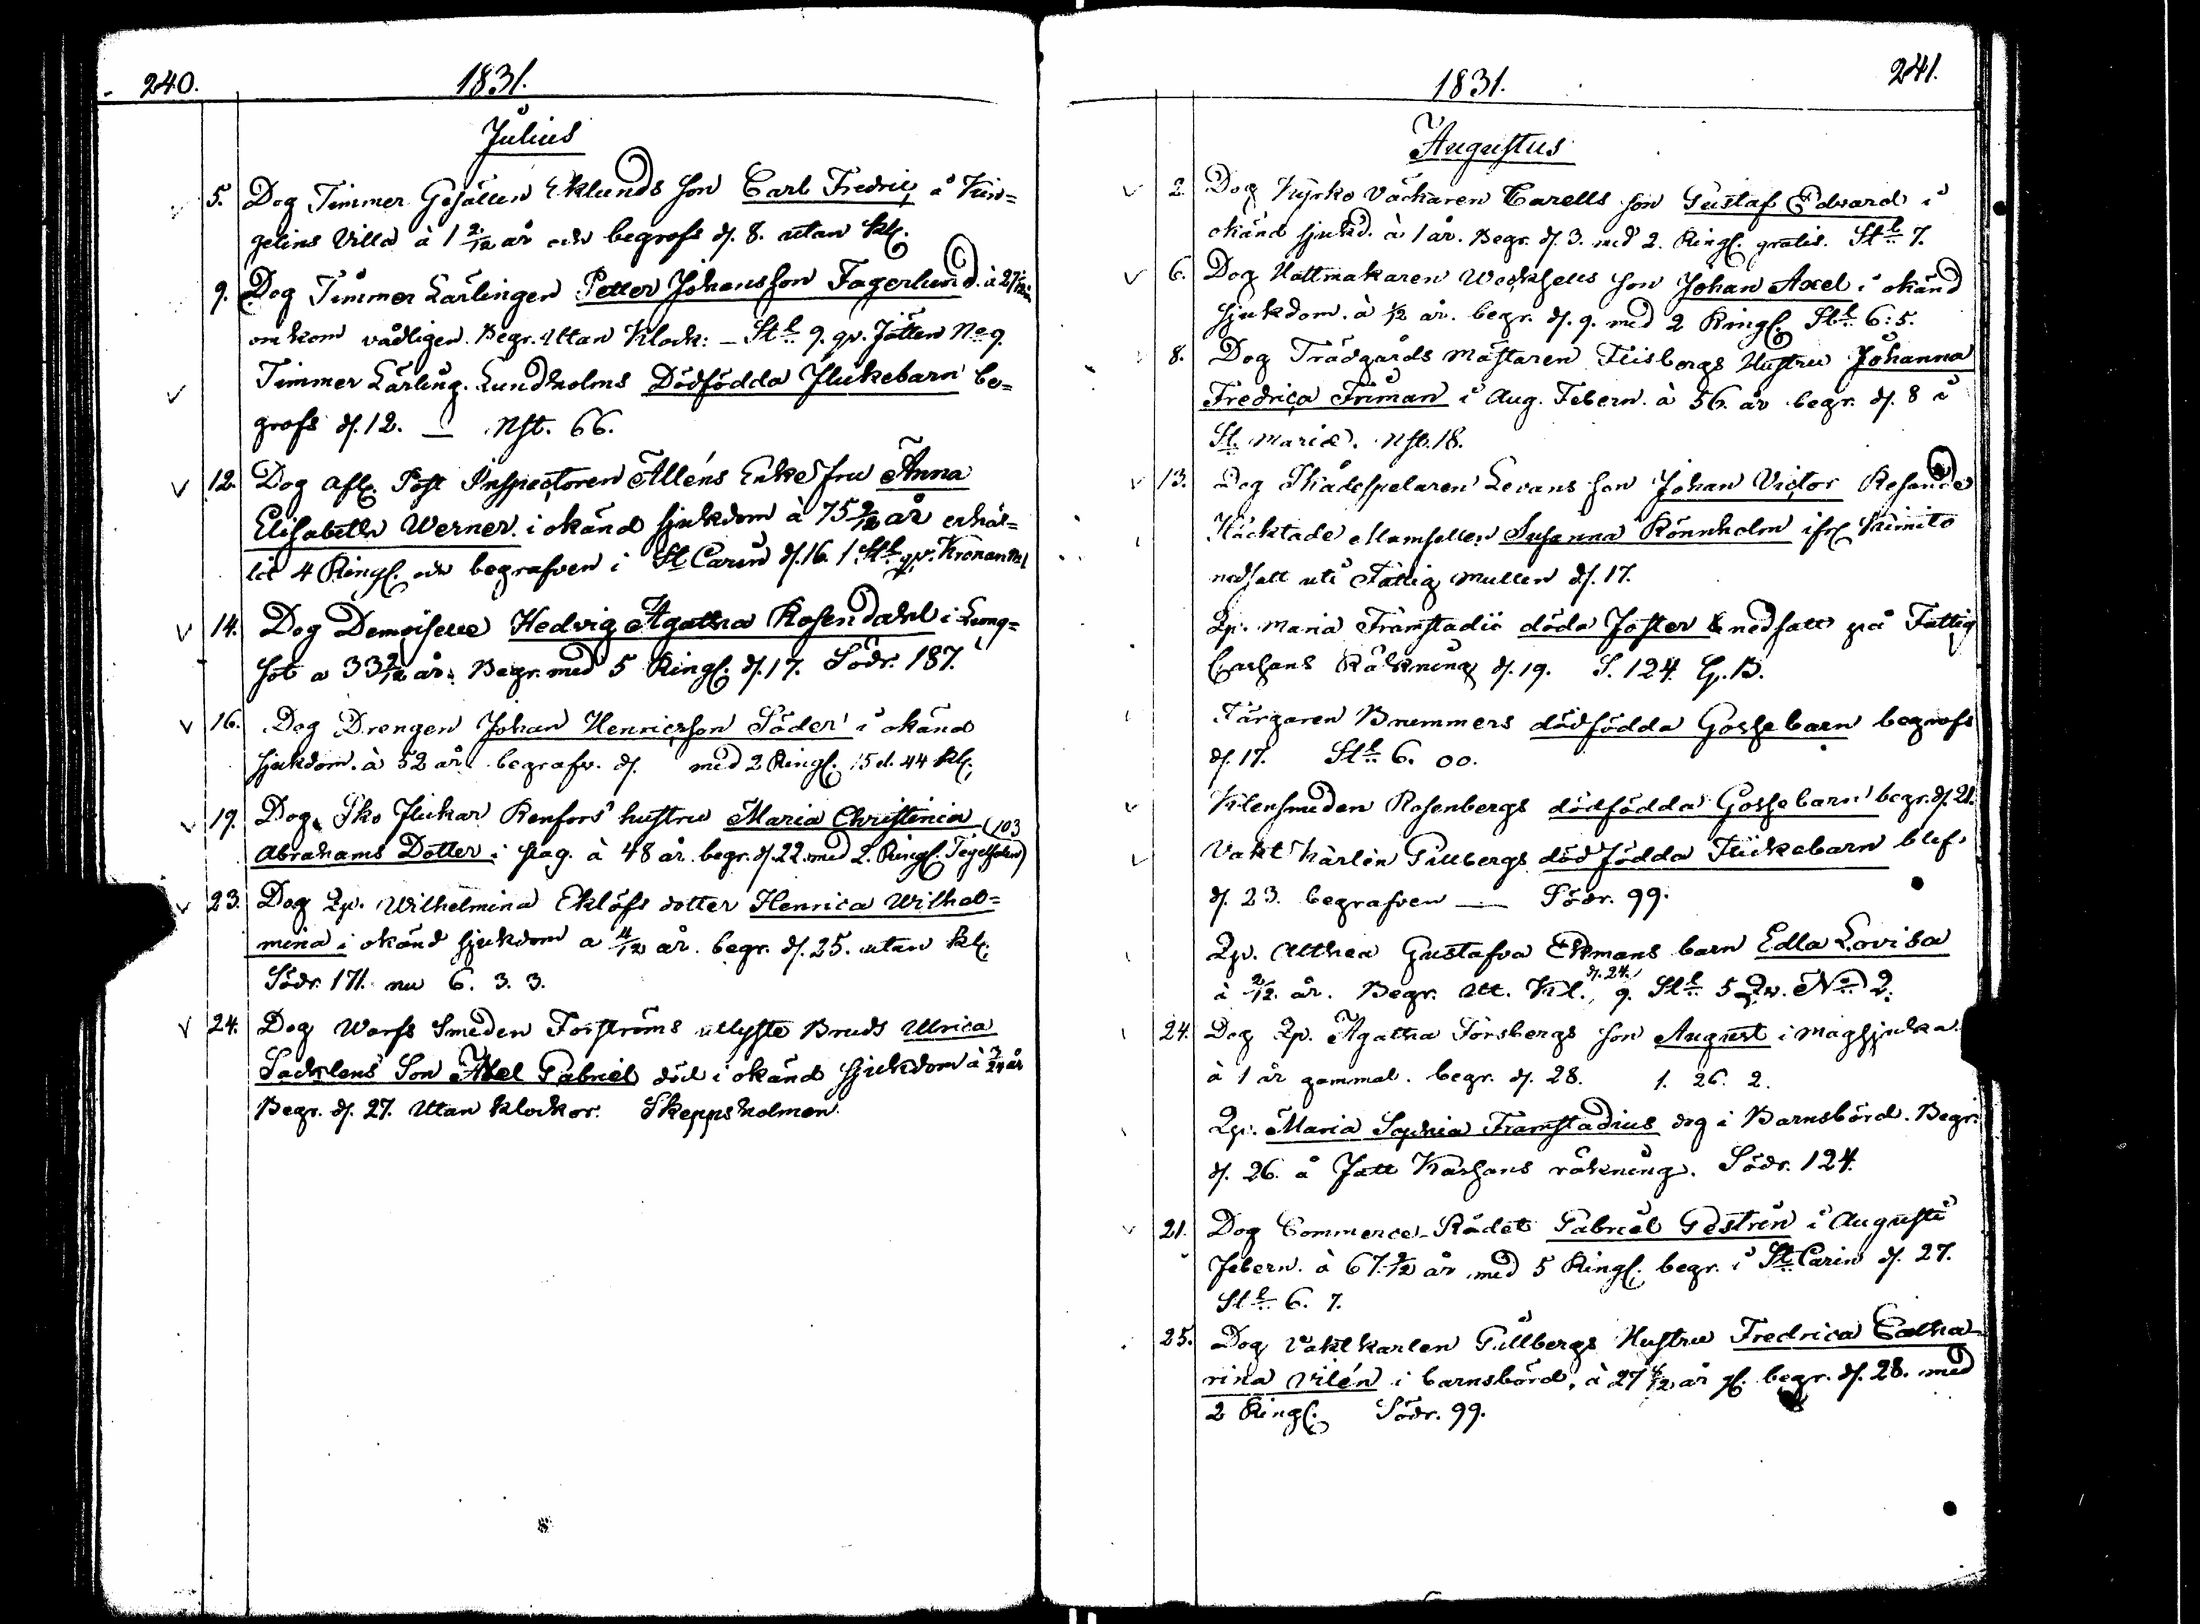 240. 1831.
Julius
5. Dog Timmer Gesällen Eklunds son Carl Fredric, å Kin=
gelins Villa à 1 2/12 år och begrofs d. 8. utan kl.
9. Dog Timmer Lärlingen Petter Johansson Fagerlund. à 27
omkom vådligen. Begr. Uttan Klock: – Stl. 9. qv. Jätten No 9
Timmer Lärling. Lundholms Dödfödda Flickebarn be=
grofs d. 12. — Nst. 66.
12. Dog afl. Post Inspectoren Alléns Enkefru Anna
Elisabeth Werner. i okänd sjukdom à 75 9/12 år erhål=
lit 4 Ringl. och begrafven i St Carin d. 16. 1 Stl. qv. Kronan No 1
14. Dog Demoiselle Hedvig Agatha Rosendahl i Lung=
sot a 33 2/12 år. Begr. med 5 Ringl. d. 17. Södr. 187.
16. Dog Drengen Johan Henricsson Söder i okänd
sjukdom. à 52 år begrafv. d. med 2 Ringl. 15 d. 44 kl.
19. Dog Sko Flickar Renfors hustru Maria Christina (103
Abrahams Dotter i slag. à 48 år. begr. d. 22. med 2. Ringl. Tegelsalen)
23. Dog Qp. Wilhelmina Eklöfs dotter Henrica Wilhel=
mina i okänd sjukdom a 4/12 år. begr. d. 25. utan kl.
Södr. 171. nu 6. 3. 3.
24. Dog Warfs Smeden Forströms utlyste Bruds Ulrica
Sacklens Son Axel Gabriel död i okänd sjukdom à 3/24 år
Begr. d. 27. Utan klockor. Skeppsholmen.
241. 1831.
Augustus
2. Dog Kyrko Väcktaren Carells son Gustaf Edvard i
okänd sjukd. à 1 år. Begr. d. 3. med 2. Ringl. gratis. Stl. 7.
6. Dog Hattmakaren Weckssells son Johan Axel i okänd
sjukdom. à 1/2 år. begr. d. 9. med 2 Ringl. Stl. 6: 5.
8. Dog Trädgårds mästaren Flisbergs Hustru Johanna
Fredrica Friman i Aug. Febern. à 56. år begr. d. 8 i
St. Mariæ. Nst. 18.
13. Dog Skådespelaren Levans son Johan Victor Resande
Häcktade Mamsellen Susanna Rönnholm ifr. Kimito
nedsatt uti Fattig mullen d. 17.
Qp. Maria Framstadii döda Foster nedsatt på Fattig
Cassans Räkning d. 19. S. 124. G. B.
Färgaren Brummers dödfödda Gossebarn begrofs
d. 17. Stl. 6. 00.
Klensmeden Rosenbergs dödfödda Gossebarn begr. d. 21.
Vakt karlen Gillbergs dödfödda Flickebarn blef
d. 23. begrafven — Södr. 99.
Qp. Althea Gustafva Ekmans barn Edla Lovisa
à 2/12. år. Begr. Utt. Kl. d. 24. 9. Stl. 5 Qv. No 2.
24. Dog Qp. Agatha Forsbergs son August i magsjuka.
à 1 år gammal. begr. d. 28. 1. 26. 2.
Qp. Maria Sophia Framstadius dog i Barnsbörd. Begr.
d. 26. å Fatt Kassans räkning. Södr. 124.
21. Dog Commerce-Rådet Gabriel Gestrin i Augusti
Febern. à 67 9/12 år med 5 Ringl. begr. i St Carin d. 27.
Stl. 6. 7.
25. Dog Vaktkarlen Gillbergs Hustru Fredrica Catha-
rina Vilén i barnsbörd, à 27 4/12 år gl. begr. d. 28. med
2 Ringl. Södr. 99.